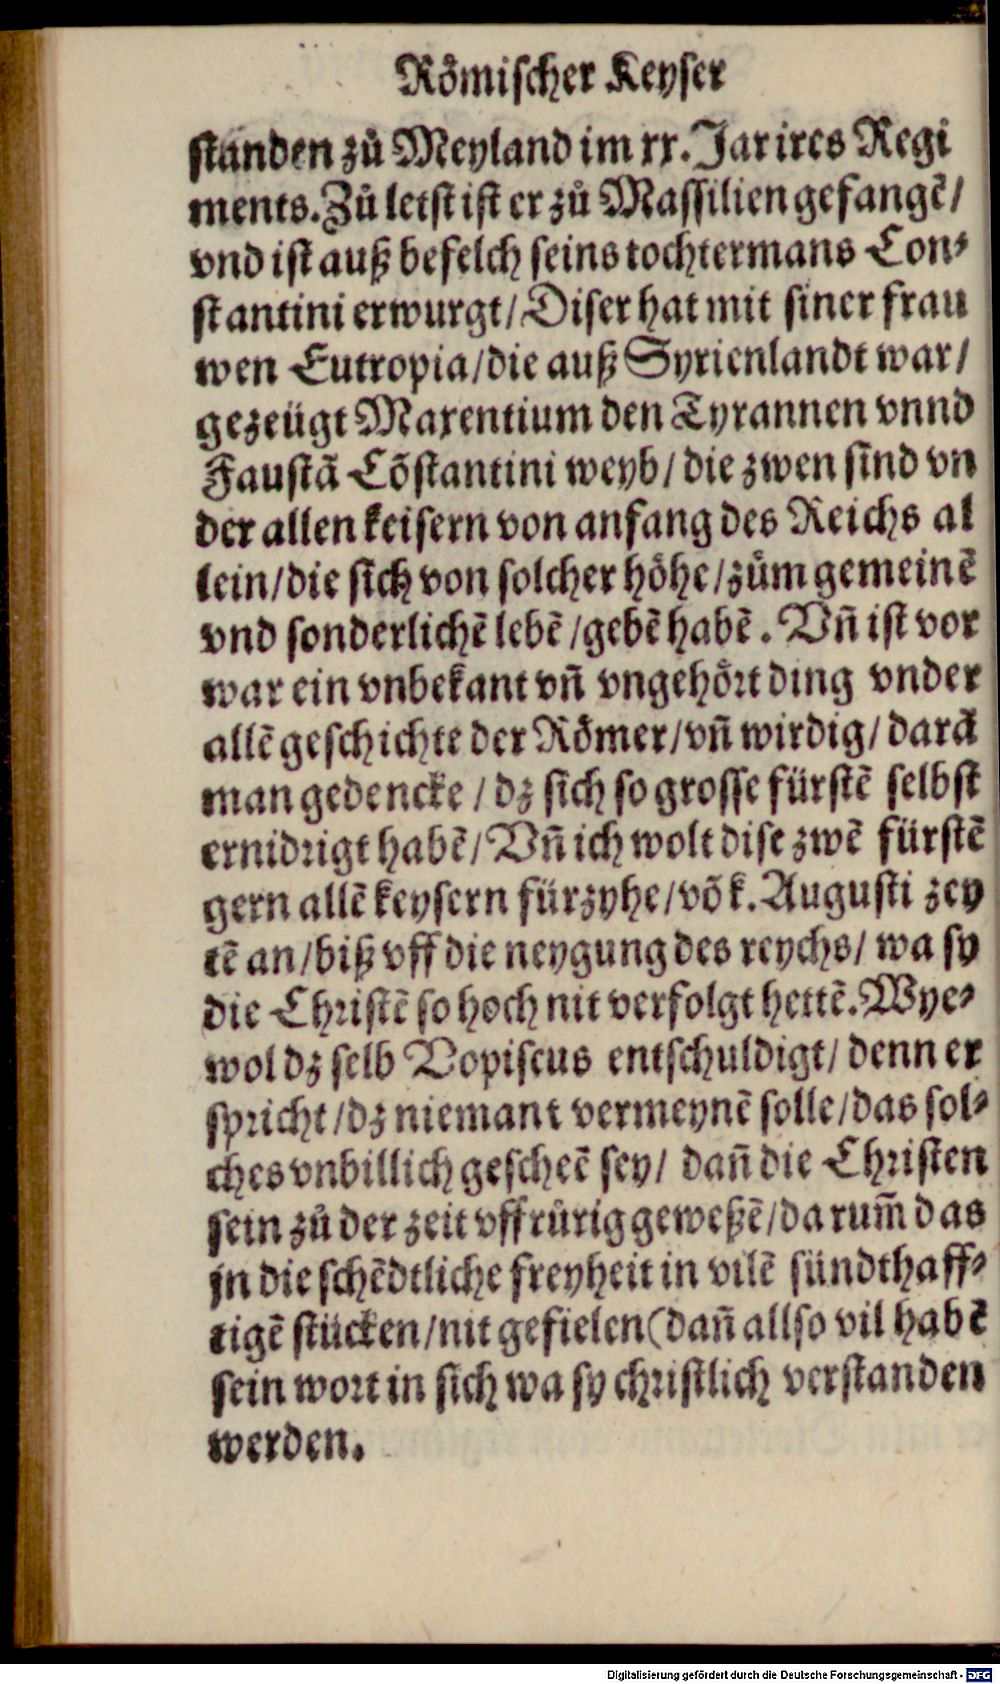 Roͤmiſcher Keyſer
ſtanden zuͦ Meyland im xx. Jar ires Regi
ments. Zuͦ letſt iſt er zuͦ Maſſilien gefangē/
vnd iſt auß befelch ſeins tochtermans Con⸗
ſtantini erwurgt/ Diſer hat mit ſiner frau
wen Eutropia/ die auß Syrienlandt war/
gezeügt Maxentium den Tyrannen vnnd
Fauſtā Cōſtantini weyb/ die zwen ſind vn
der allen keiſern von anfang des Reichs al
lein/ die ſich von ſolcher hoͤhe/ zuͦm gemeinē
vnd ſonderlichē lebē/ gebē habē. Vn̄ iſt vor
war ein vnbekant vn̄ vngehoͤrt ding vnder
allē geſchichte der Roͤmer/ vn̄ wirdig/ darā
man gedencke/ dz ſich ſo groſſe fürſtē ſelbſt
ernidrigt habē/ Vn̄ ich wolt diſe zwē fürſtē
gern allē keyſern fürzyhe/ vō k. Auguſti zey
tē an/ biß vff die neygung des reychs/ wa ſy
die Chriſtē ſo hoch nit verfolgt hettē. Wye⸗
wol dz ſelb Vopiſcus entſchuldigt/ denn er
ſpricht/ dz niemant vermeynē ſolle/ das ſol⸗
ches vnbillich geſcheē ſey/ dan̄ die Chriſten
ſein zuͦ der zeit vffruͤrig geweßē/ darum̄ das
jn die ſchēdtliche freyheit in vilē ſündthaff⸗
tigē ſtücken/ nit gefielen (dan̄ allſo vil habē
ſein wort in ſich wa ſy chriſtlich verſtanden
werden.
Digitalisierung gefördert durch die Deutsche Forschungsgemeinschaft - DFG